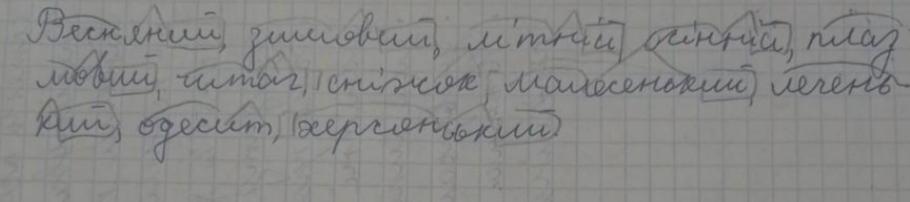 Весняний, зимовий, літній, осінній, плаз
мовий, читач, сніжок, малесенький, легень-
кий, одесит, херсонський